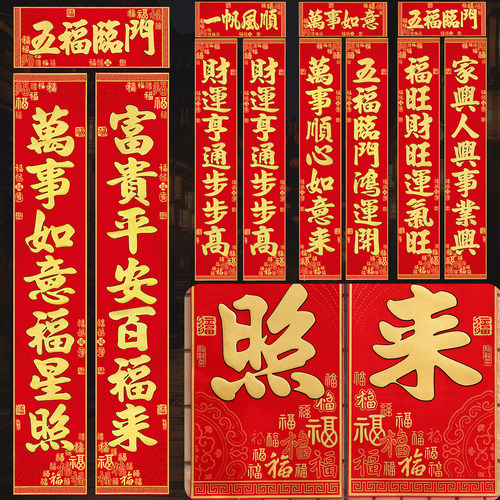 五福臨門
富貴平安百福来
萬事如意福星照
一帆風順
財運亨通步步高
財運亨通步步高
萬事如意
五福臨門鴻運開
萬事順心如意来
五福臨門
家興人興事業興
福旺財旺運氣旺
照
来
福
福